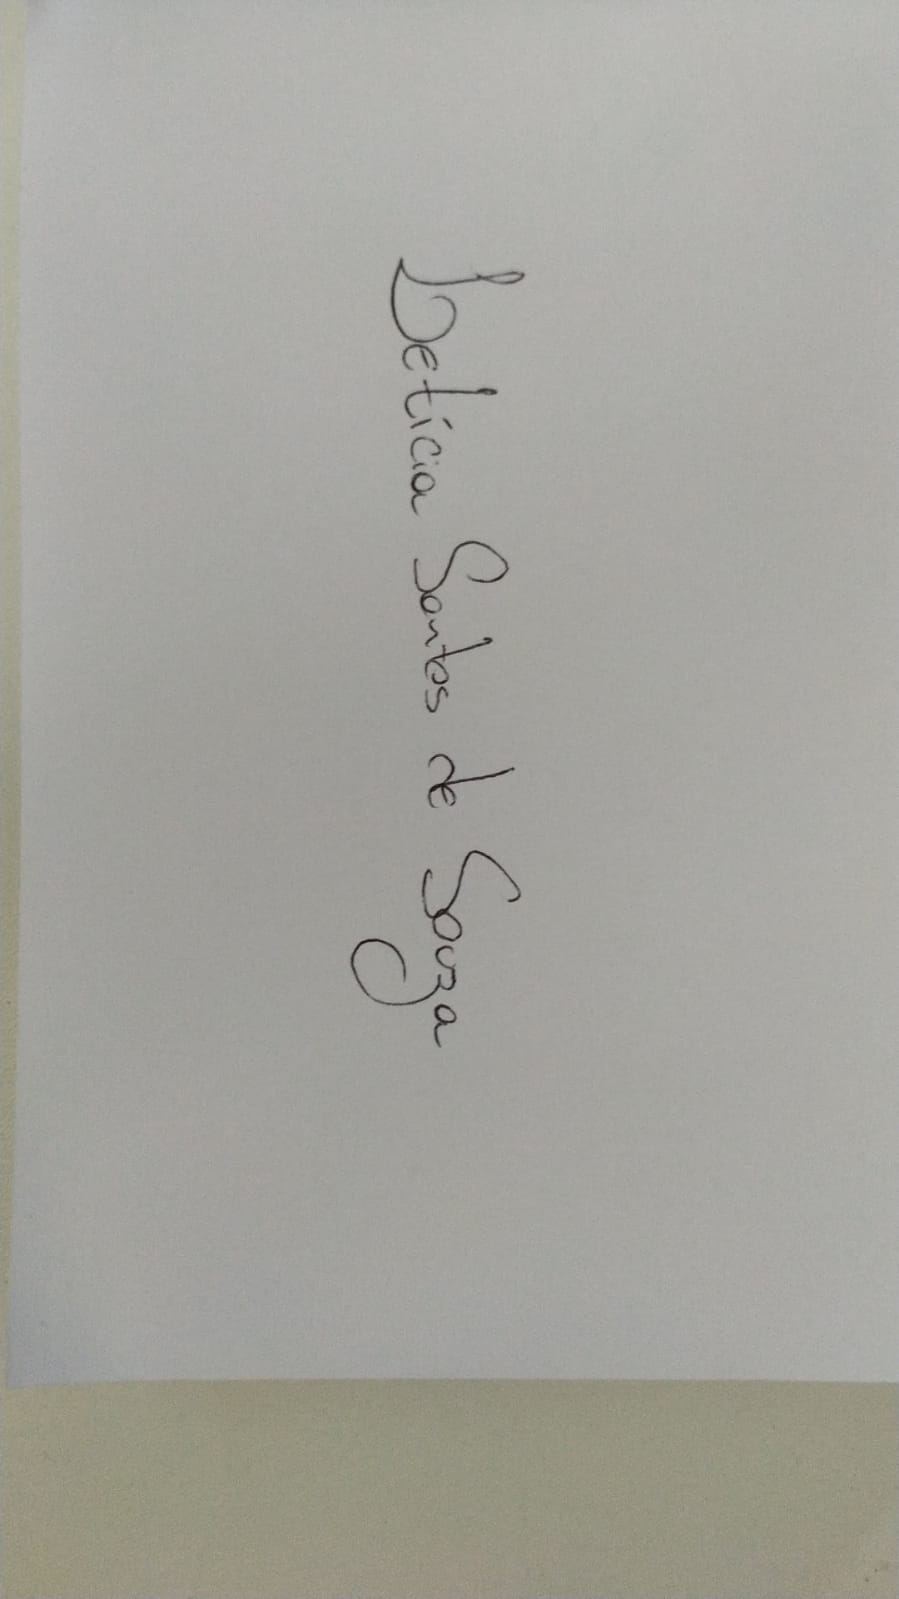 Letícia Santos de Souza